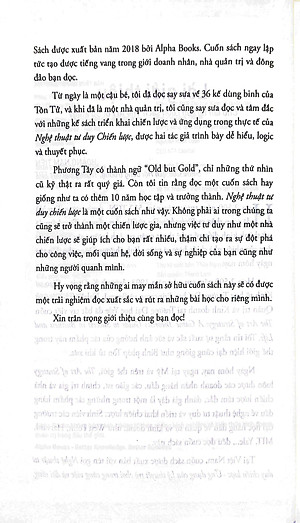 Sách được xuất bản năm 2018 bởi Alpha Books. Cuốn sách ngay lập
tức tạo được tiếng vang trong giới doanh nhân, nhà quản trị và đông
đảo bạn đọc.
Từ ngày là một cậu bé, tôi đã đọc say sưa về 36 kế dùng binh của
Tôn Tử, và khi đã là một nhà quản trị, tôi cũng say sưa đọc và tâm đắc
với những kế sách triển khai chiến lược và ứng dụng trong thực tế của
Nghệ thuật tư duy Chiến lược, được hai tác giả trình bày dễ hiểu, logic
và thuyết phục.
Phương Tây có thành ngữ "Old but Gold", chỉ những thứ nhìn
cũ kỹ thật ra rất quý giá. Còn tôi tin rằng đọc một cuốn sách hay
giống như ta có thêm 10 năm học tập và trưởng thành. Nghệ thuật tư
duy chiến lược là một cuốn sách như vậy. Không phải ai trong chúng ta
cũng sẽ trở thành một chiến lược gia, nhưng việc tư duy như một nhà
chiến lược sẽ giúp ích cho bạn rất nhiều, thậm chí tạo ra sự đột phá
cho công việc, mối quan hệ, đời sống và sự nghiệp của bạn cũng như
những người quanh mình.
Hy vọng rằng những ai may mắn sở hữu cuốn sách này sẽ có được
một trải nghiệm đọc xuất sắc và rút ra những bài học cho riêng mình.
Xin trân trọng giới thiệu cùng bạn đọc!